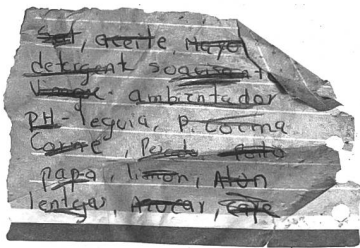 Sal, aceite, Mayo
detergent suavizant
ambientador
PH-leguia, P. cocina
Carne, Pollo
papa, limon, Atun
lentejas, Azucar, Cafe